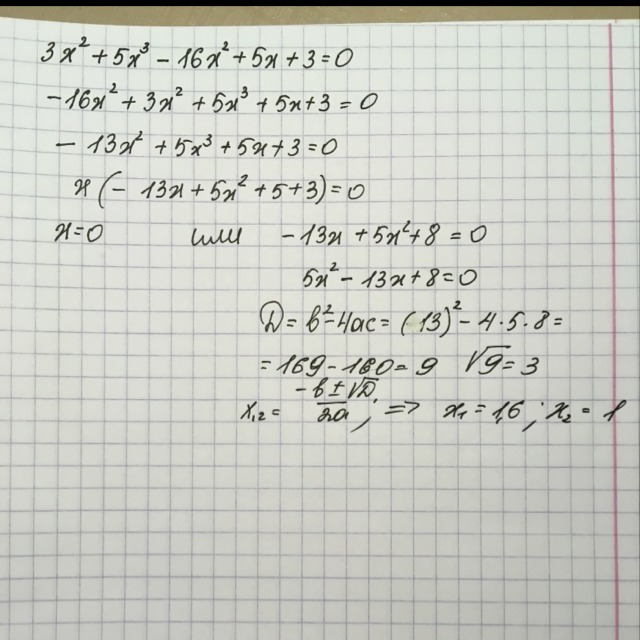 3x² + 5x³ - 16x² + 5x + 3 = 0
-16x² + 3x² + 5x³ + 5x + 3 = 0
- 13x² + 5x³ + 5x + 3 = 0
x (- 13x + 5x² + 5 + 3) = 0
x = 0 или - 13x + 5x² + 8 = 0
5x² - 13x + 8 = 0
D = b² - 4ac = (13)² - 4 · 5 · 8 =
= 169 - 160 = 9 √9 = 3
x₁,₂ = (-b ± √D)/2a ; => x₁ = 1,6 ; x₂ = 1